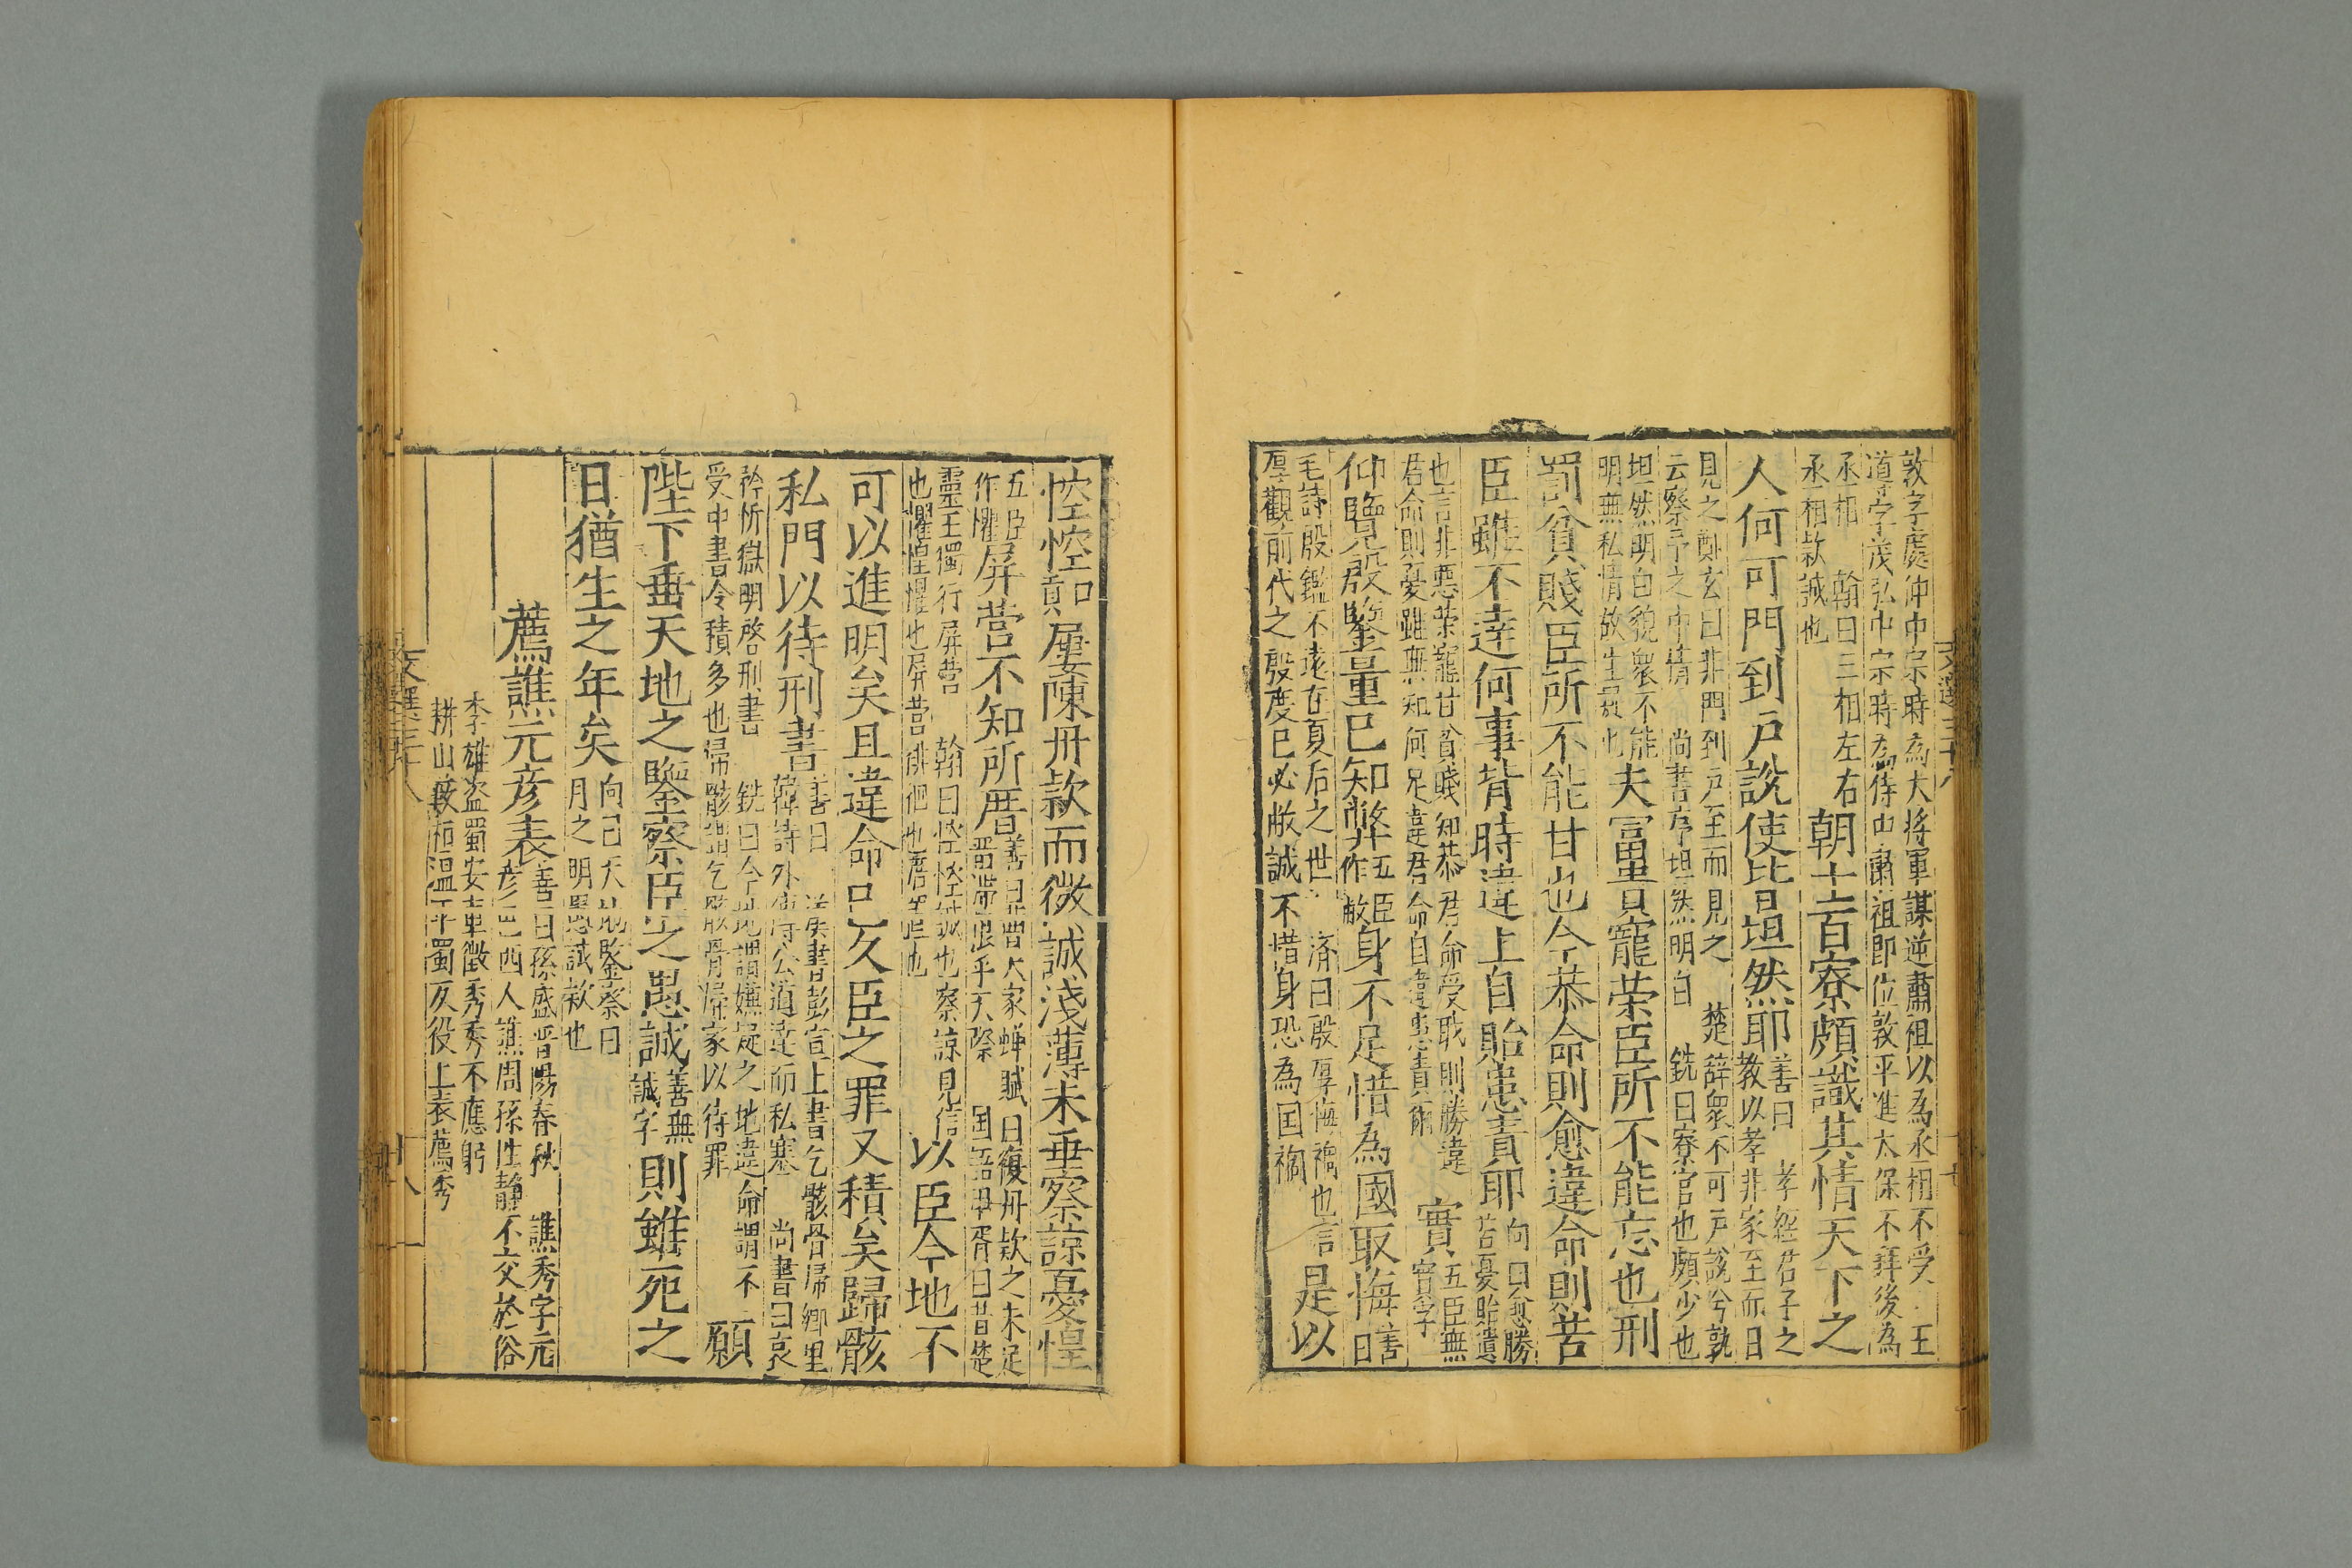 敦字處仲中宗時為大將軍謀逆肅祖以為丞相不受 王
道字茂弘中宗時為侍中肅祖即位敦平進太保不拜後為
丞相 翰曰三相左右
丞相款誠也
朝士百寮頗識其情天下之
人何可門到戶說使皆坦然耶
善曰 孝經君子之
教以孝非家至而日
見之鄭玄曰非門到戶至而見之 楚辭衆不可戶說兮孰
云察予之中情 尚書序坦然明白 銑曰寮官也頗少也
坦然明白貌衆不能
明無私情故生罪也
夫富貴寵榮臣所不能忘也刑
罰貧賤臣所不能甘也今恭命則愈違命則苦
臣雖不達何事背時違上自貽患責耶
向曰愈勝
苦憂貽遺
也言非惡榮寵甘貧賤知恭君命受戝則勝違
君命則憂雖無知何足違君命自違患責爾
實
五臣無
實字
仰覽殷鑒量已知弊
五臣
作敝
身不足惜為國取悔
善
曰
毛詩殷鑑不遠在夏后之世 濟曰殷厚悔禍也言
厚觀前代之殷度已必敝誠不惜身恐為国禍
是以
悾悾屢陳丹款而微誠淺薄未垂察諒憂惶
五臣
作懼
屏營不知所厝
善曰曹大家蟬賦曰復丹款之未足
留滯恨乎天際 国語申胥曰昔楚
靈王獨行屏營 翰曰悾悾誠也察諒見信
也懼惶懼也屏營徘徊也厝置也
以臣今地不
可以進明矣且違命已久臣之罪又積矣歸骸
私門以待刑書
善曰 漢書彭宣上書乞骸骨歸鄉里
韓詩外傳公道達而私塞 尚書曰哀
矜折獄明啓刑書 銑曰今地謂嫌疑之地違命謂不
受中書令積多也歸骸謂乞骸骨歸家以待罪
願
陛下垂天地之鑒察臣之愚誠
善無
誠字
則雖死之
日猶生之年矣
向曰天地鑒察日
月之明愚誠款也
薦譙元彥表
善曰孫盛晋陽春秋 譙秀字元
彥巴西人譙周孫性靜不交於俗
李雄盜蜀安車徵秀秀不應躬
耕山藪桓温平蜀反役上表薦秀
文選三十八
十八